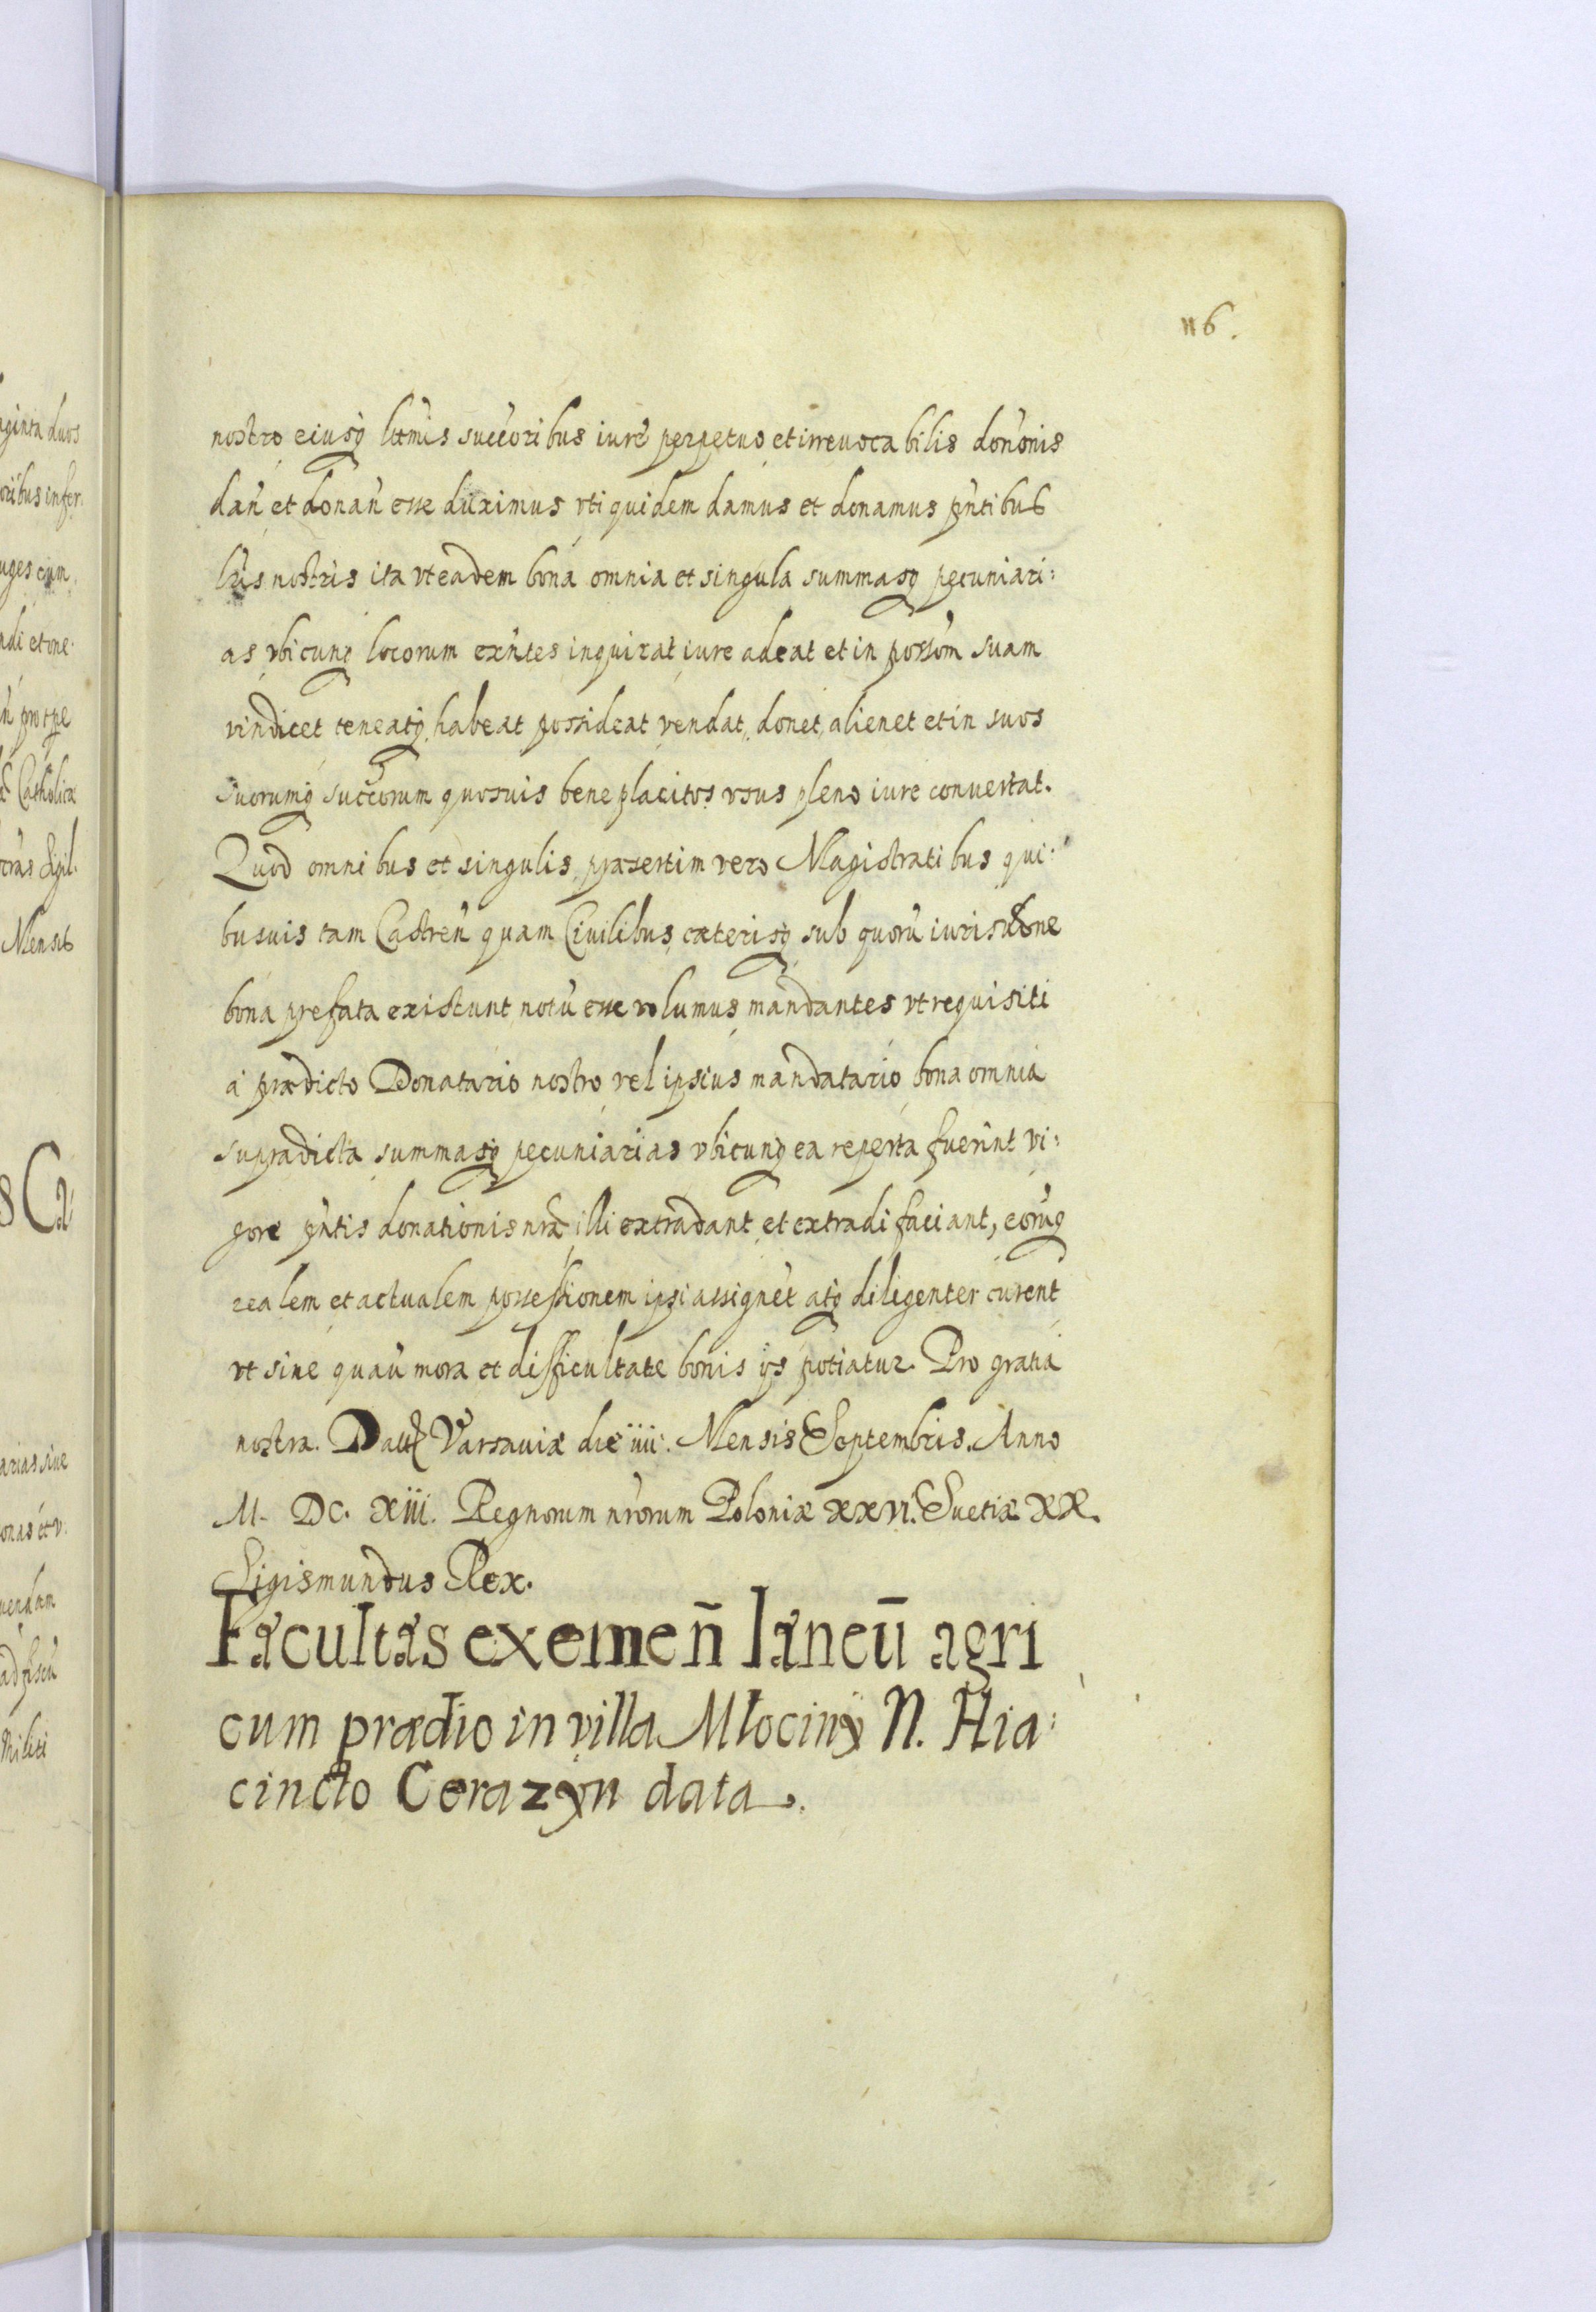 116.
nostro eiusq ltmis succoribus iure perpetuo et irreuocabilis dononis
dan̄ et donan̄ esse duximus vti quidem damus et donamus pn̄tibus
lr̄is nostris ita vt eadem bona omnia et singula summasq pecuniari:
as vbicunq locorum exn̄tes inquirat iure adeat et in possom̄ suam
vindicet teneatq, habeat possideat, vendat, donet, alienet et in suos
suorumq succorum quosuis bene placitos vsus pleno iure conuertat.
Quod omnibus et singulis, præsertim vero Magistratibus qui:
busuis tam Castren̄ quam Ciuilibus, cæterisq sub quorū iurisdone
bona prefata existunt, notū esse volumus, mandantes vt requisiti
a prædicto Donatario nostro vel ipsius mandatario, bona omnia
supradicta summasq pecuniarias vbicunq ea reperta fuerint vi:
gore pn̄tis donationis nræ illi extradant et extradi faciant, eorūq
realem et actualem possessionem ipsi assignēt atq diligenter curent
vt sine quaū mora et difficultate bonis ijs potiatur. Pro gratia
nostra. Dat Varsauiæ die iiii. Mensis Septembris. Anno
M. DC. xiii. Regnorum nrorum Poloniæ xxvi. Suetiæ xx.
Sigismundus Rex.
Facultas exemen̄ laneū agri
cum prædio in villa Młociny N. Hia:
cincto Cerazyn data.
aginta duos
oribus infer
uges cum
ndi et one
n̄ pro tpe
Catholicæ
Sigil.
Mensis
s Ca:
arias siue
onas et v:
uendam
ad fiscū
Militi